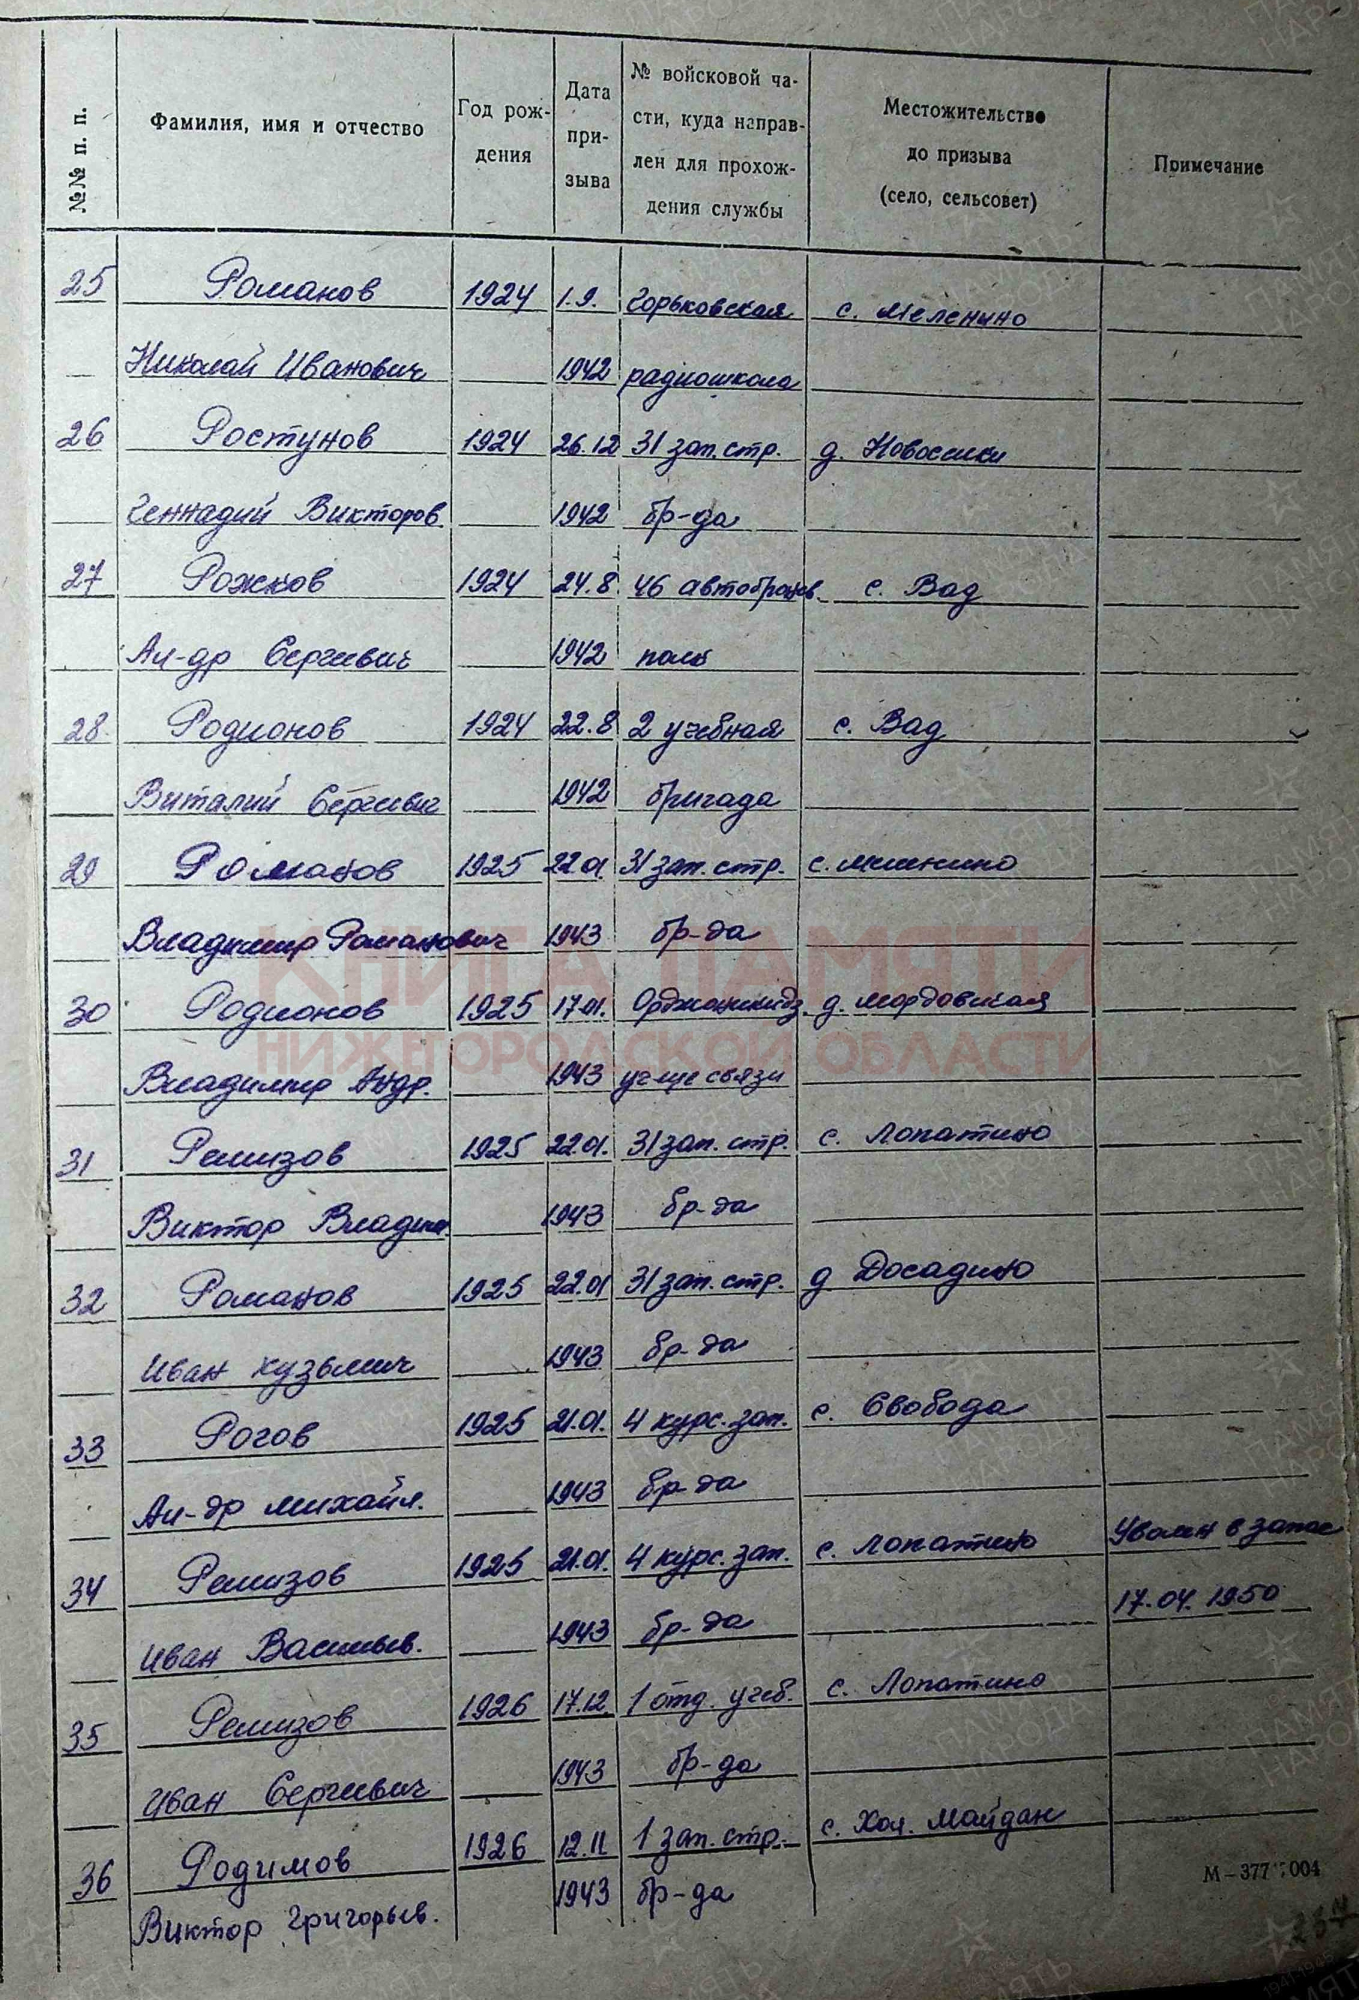 №№ п. п. Фамилия, имя и отчество Год рож- дения Дата при- зыва № войсковой ча- сти, куда направ- лен для прохож- дения службы Местожительство до призыва (село, сельсовет) Примечание
25 Романов 1924 1.9. Горьковская с. Меленино
Николай Иванович 1942 радиошкола
26 Ростунов 1924 26.12 31 зап. стр. д. Новоселки
Геннадий Викторов. 1942 бр-да
27 Рожков 1924 24.8. 46 автобронев. с. Вад
Ал-др Сергеевич 1942 полк
28 Родионов 1924 22.8 2 учебная с. Вад
Виталий Сергеевич 1942 бригада
29 Романов 1925 22.01 31 зап. стр. с.
Владимир Романович 1943 бр-да
КНИГА ПАМЯТИ
30 Родионов 1925 17.01. Орджоникидз. д. Мордовская
НИЖЕГОРОДСКОЙ ОБЛАСТИ
Владимир Андр. 1943 уч-ще связи
31 Ремизов 1925 22.01. 31 зап. стр. с. Лопатино
Виктор Владим. 1943 бр-да
32 Романов 1925 22.01 31 зап. стр. д Досадино
Иван Кузьмич 1943 бр-да
33 Рогов 1925 21.01. 4 курс. зап. с. Свобода
Ал-др Михайл. 1943 бр-да
34 Ремизов 1925 21.01. 4 курс. зап. с. Лопатино Уволен в запас
Иван Васильев. 1943 бр-да 17.04. 1950
35 Ремизов 1926 17.12. 1 отд. учеб. с. Лопатино
Иван Сергеевич 1943 бр-да
36 Родимов 1926 12.11 1 зап. стр. с. Хол. Майдан
Виктор Григорьев. 1943 бр-да
М-377 004
237